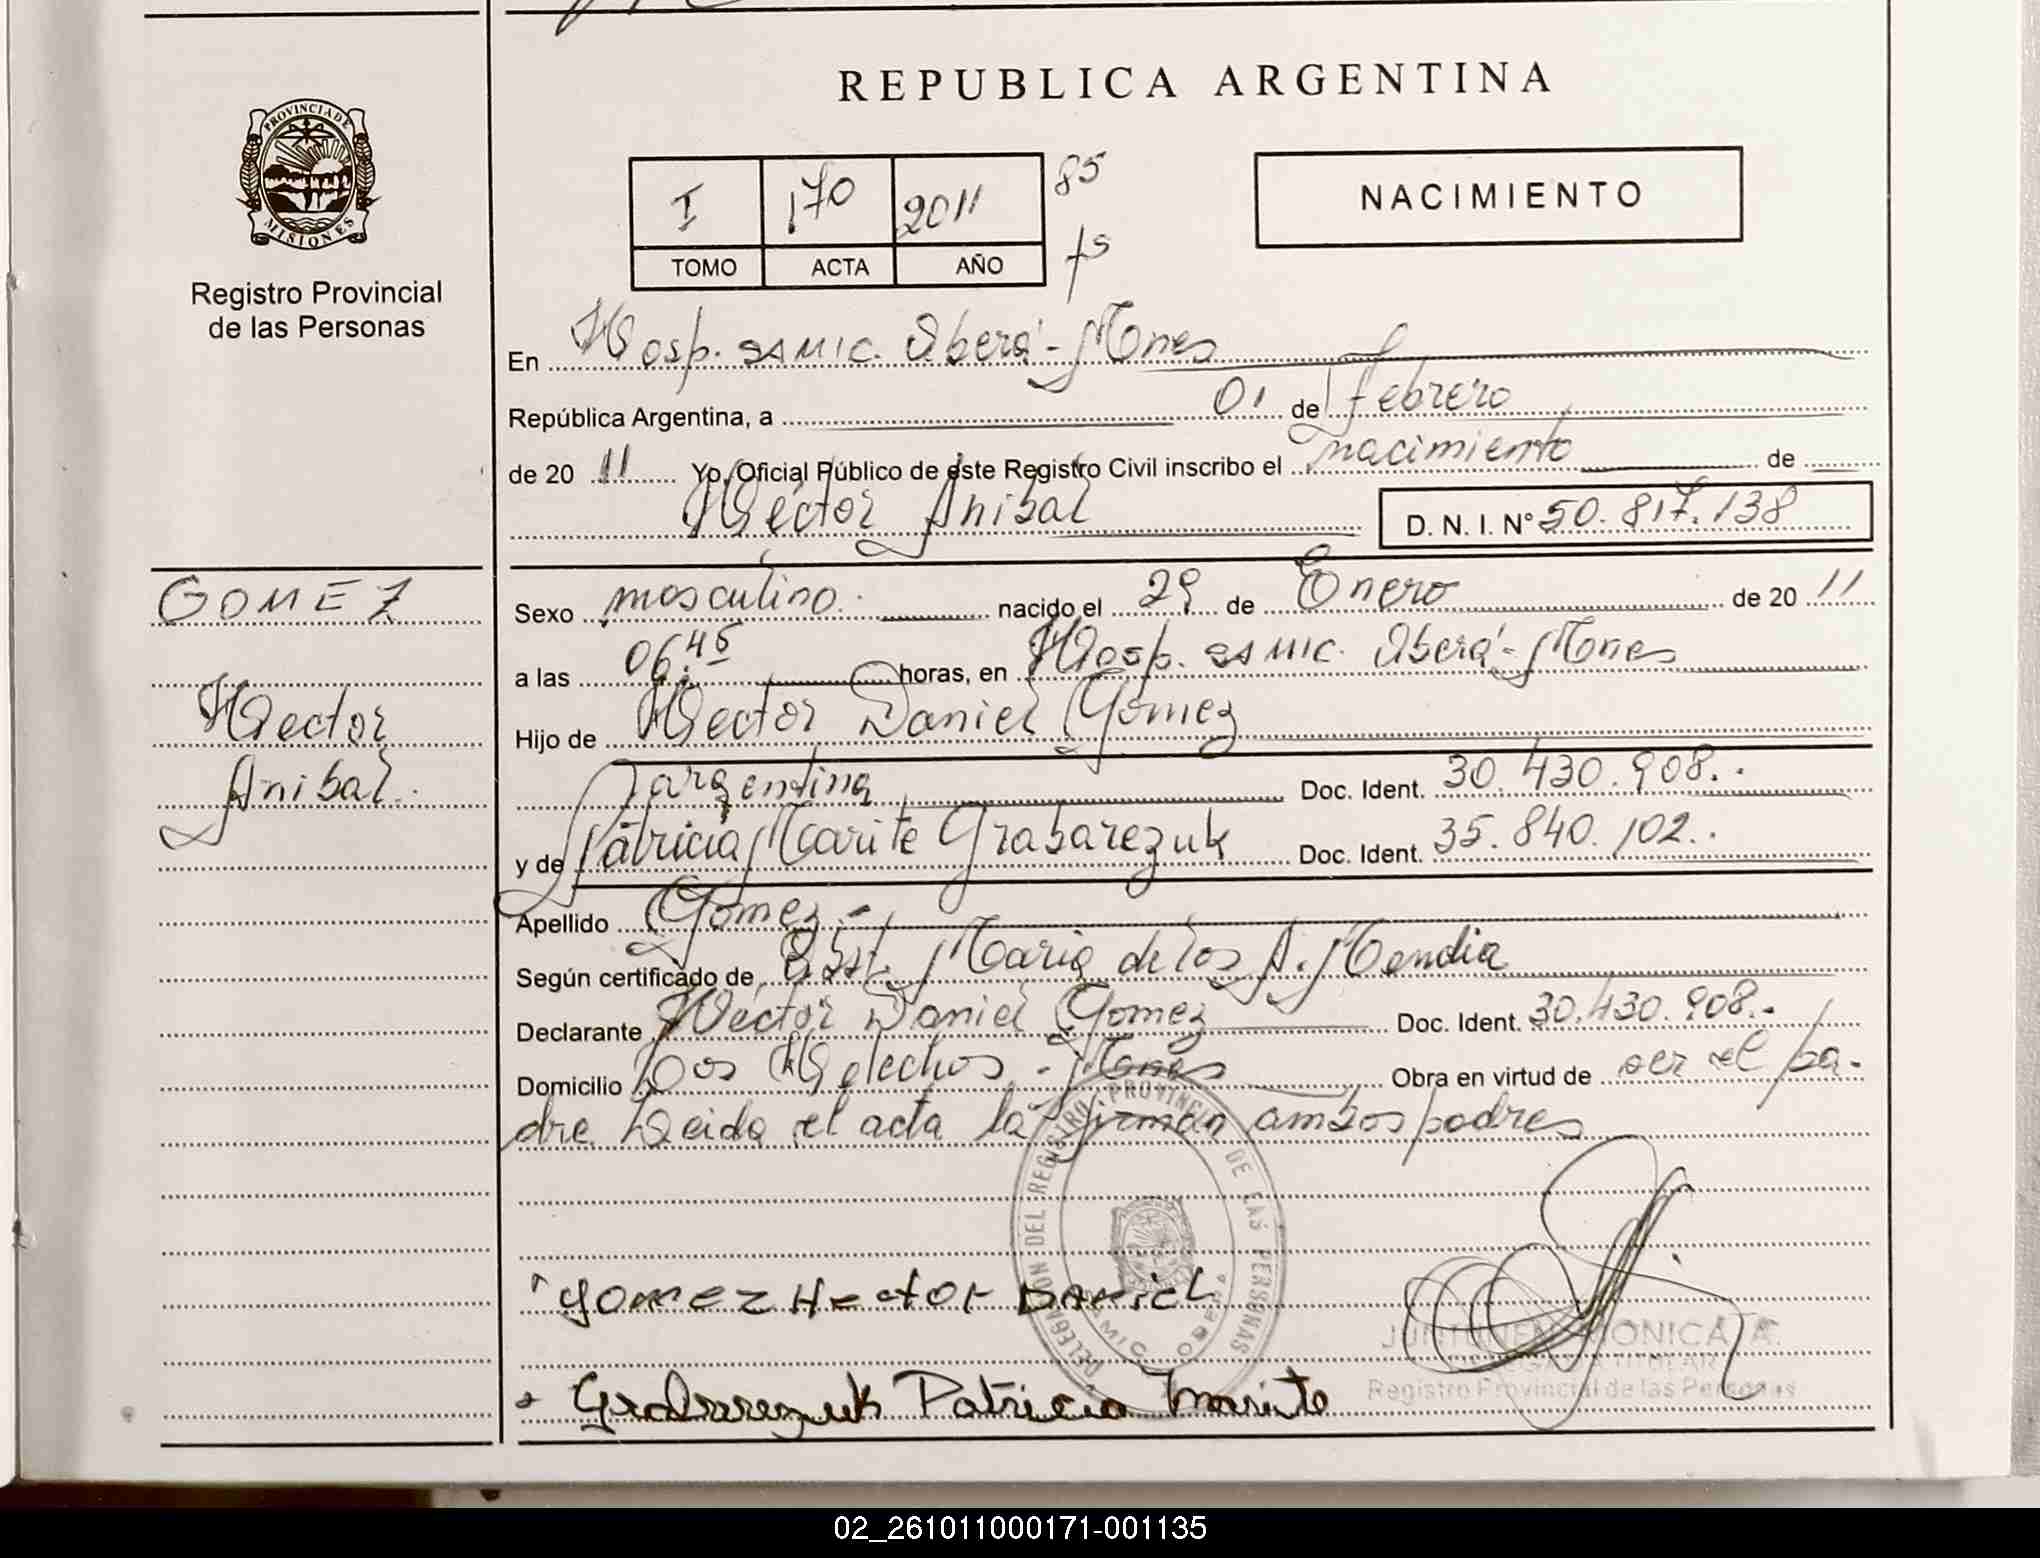 REPUBLICA ARGENTINA
PROVINCIA DE
MISIONES
Registro Provincial
de las Personas
I 170 2011 85
TOMO ACTA AÑO fs
NACIMIENTO
En Hosp. SAMIC. Oberá - Mnes
República Argentina, a 01 de febrero
de 2011 Yo, Oficial Público de este Registro Civil inscribo el nacimiento de
Héctor Anibal
D. N. I. N° 50.817.138
GOMEZ
Hector
Anibal
Sexo masculino. nacido el 29 de Enero de 2011
a las 06:45 horas, en Hosp. SAMIC. Oberá - Mnes
Hijo de Hector Daniel Gomez
argentina Doc. Ident. 30.430.908.
y de Patricia Marite Grabarezuk Doc. Ident. 35.840.102.
Apellido Gomez -
Según certificado de Obst. Maria de los A. Mendia
Declarante Hector Daniel Gomez Doc. Ident. 30.430.908.
Domicilio Los Helechos - Mnes Obra en virtud de ser el pa-
dre Leida el acta la firman ambos padres
DELEGACION DEL REGISTRO PROVINCIAL DE LAS PERSONAS
SAMIC OBERA
Gomez Hector Daniel
MONICA A.
DELEGADA TITULAR
Registro Provincial de las Personas
Grabarezuk Patricia Marite
02_261011000171-001135